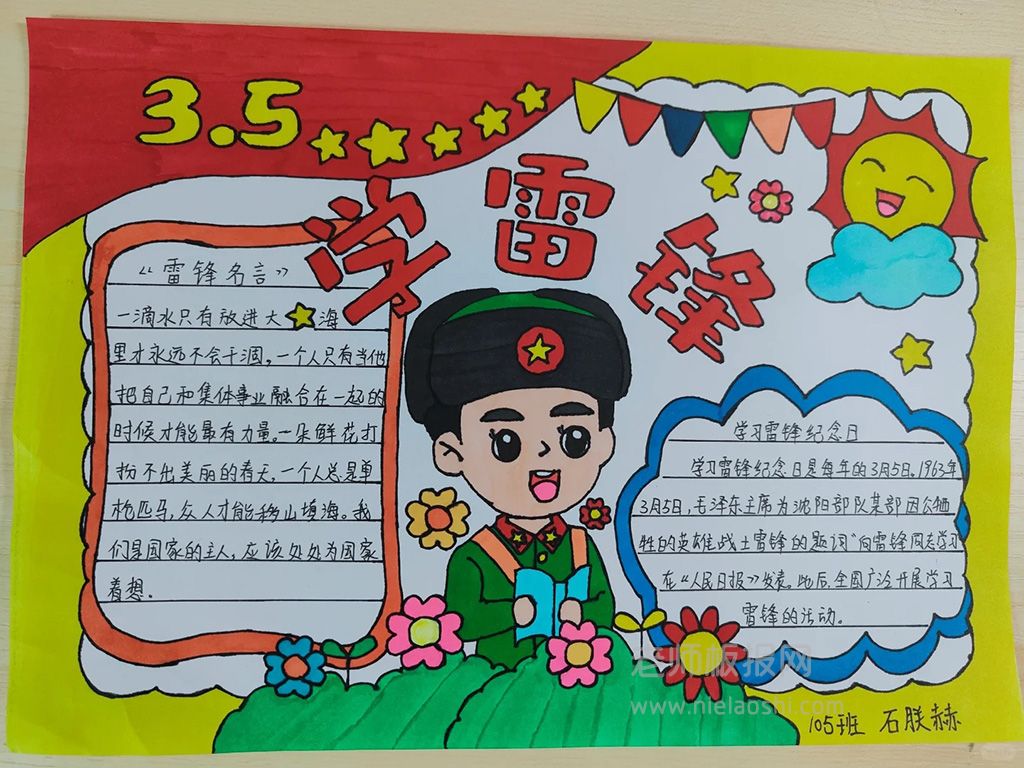 3.5
学雷锋
“雷锋名言”
一滴水只有放进大海
里才永远不会干涸,一个人只有当他
把自己和集体事业融合在一起的
时候才能最有力量。一朵鲜花打
扮不出美丽的春天,一个人总是单
枪匹马,众人才能移山填海。我
们是国家的主人,应该处处为国家
着想。
学习雷锋纪念日
学习雷锋纪念日是每年的3月5日。1963年
3月5日,毛泽东主席为沈阳部队某部因公牺
牲的英雄战士雷锋的题词“向雷锋同志学习
在“人民日报”发表。此后,全国广泛开展学习
雷锋的活动。
老师板报网
www.nielaoshi.com
105班 石朕赫